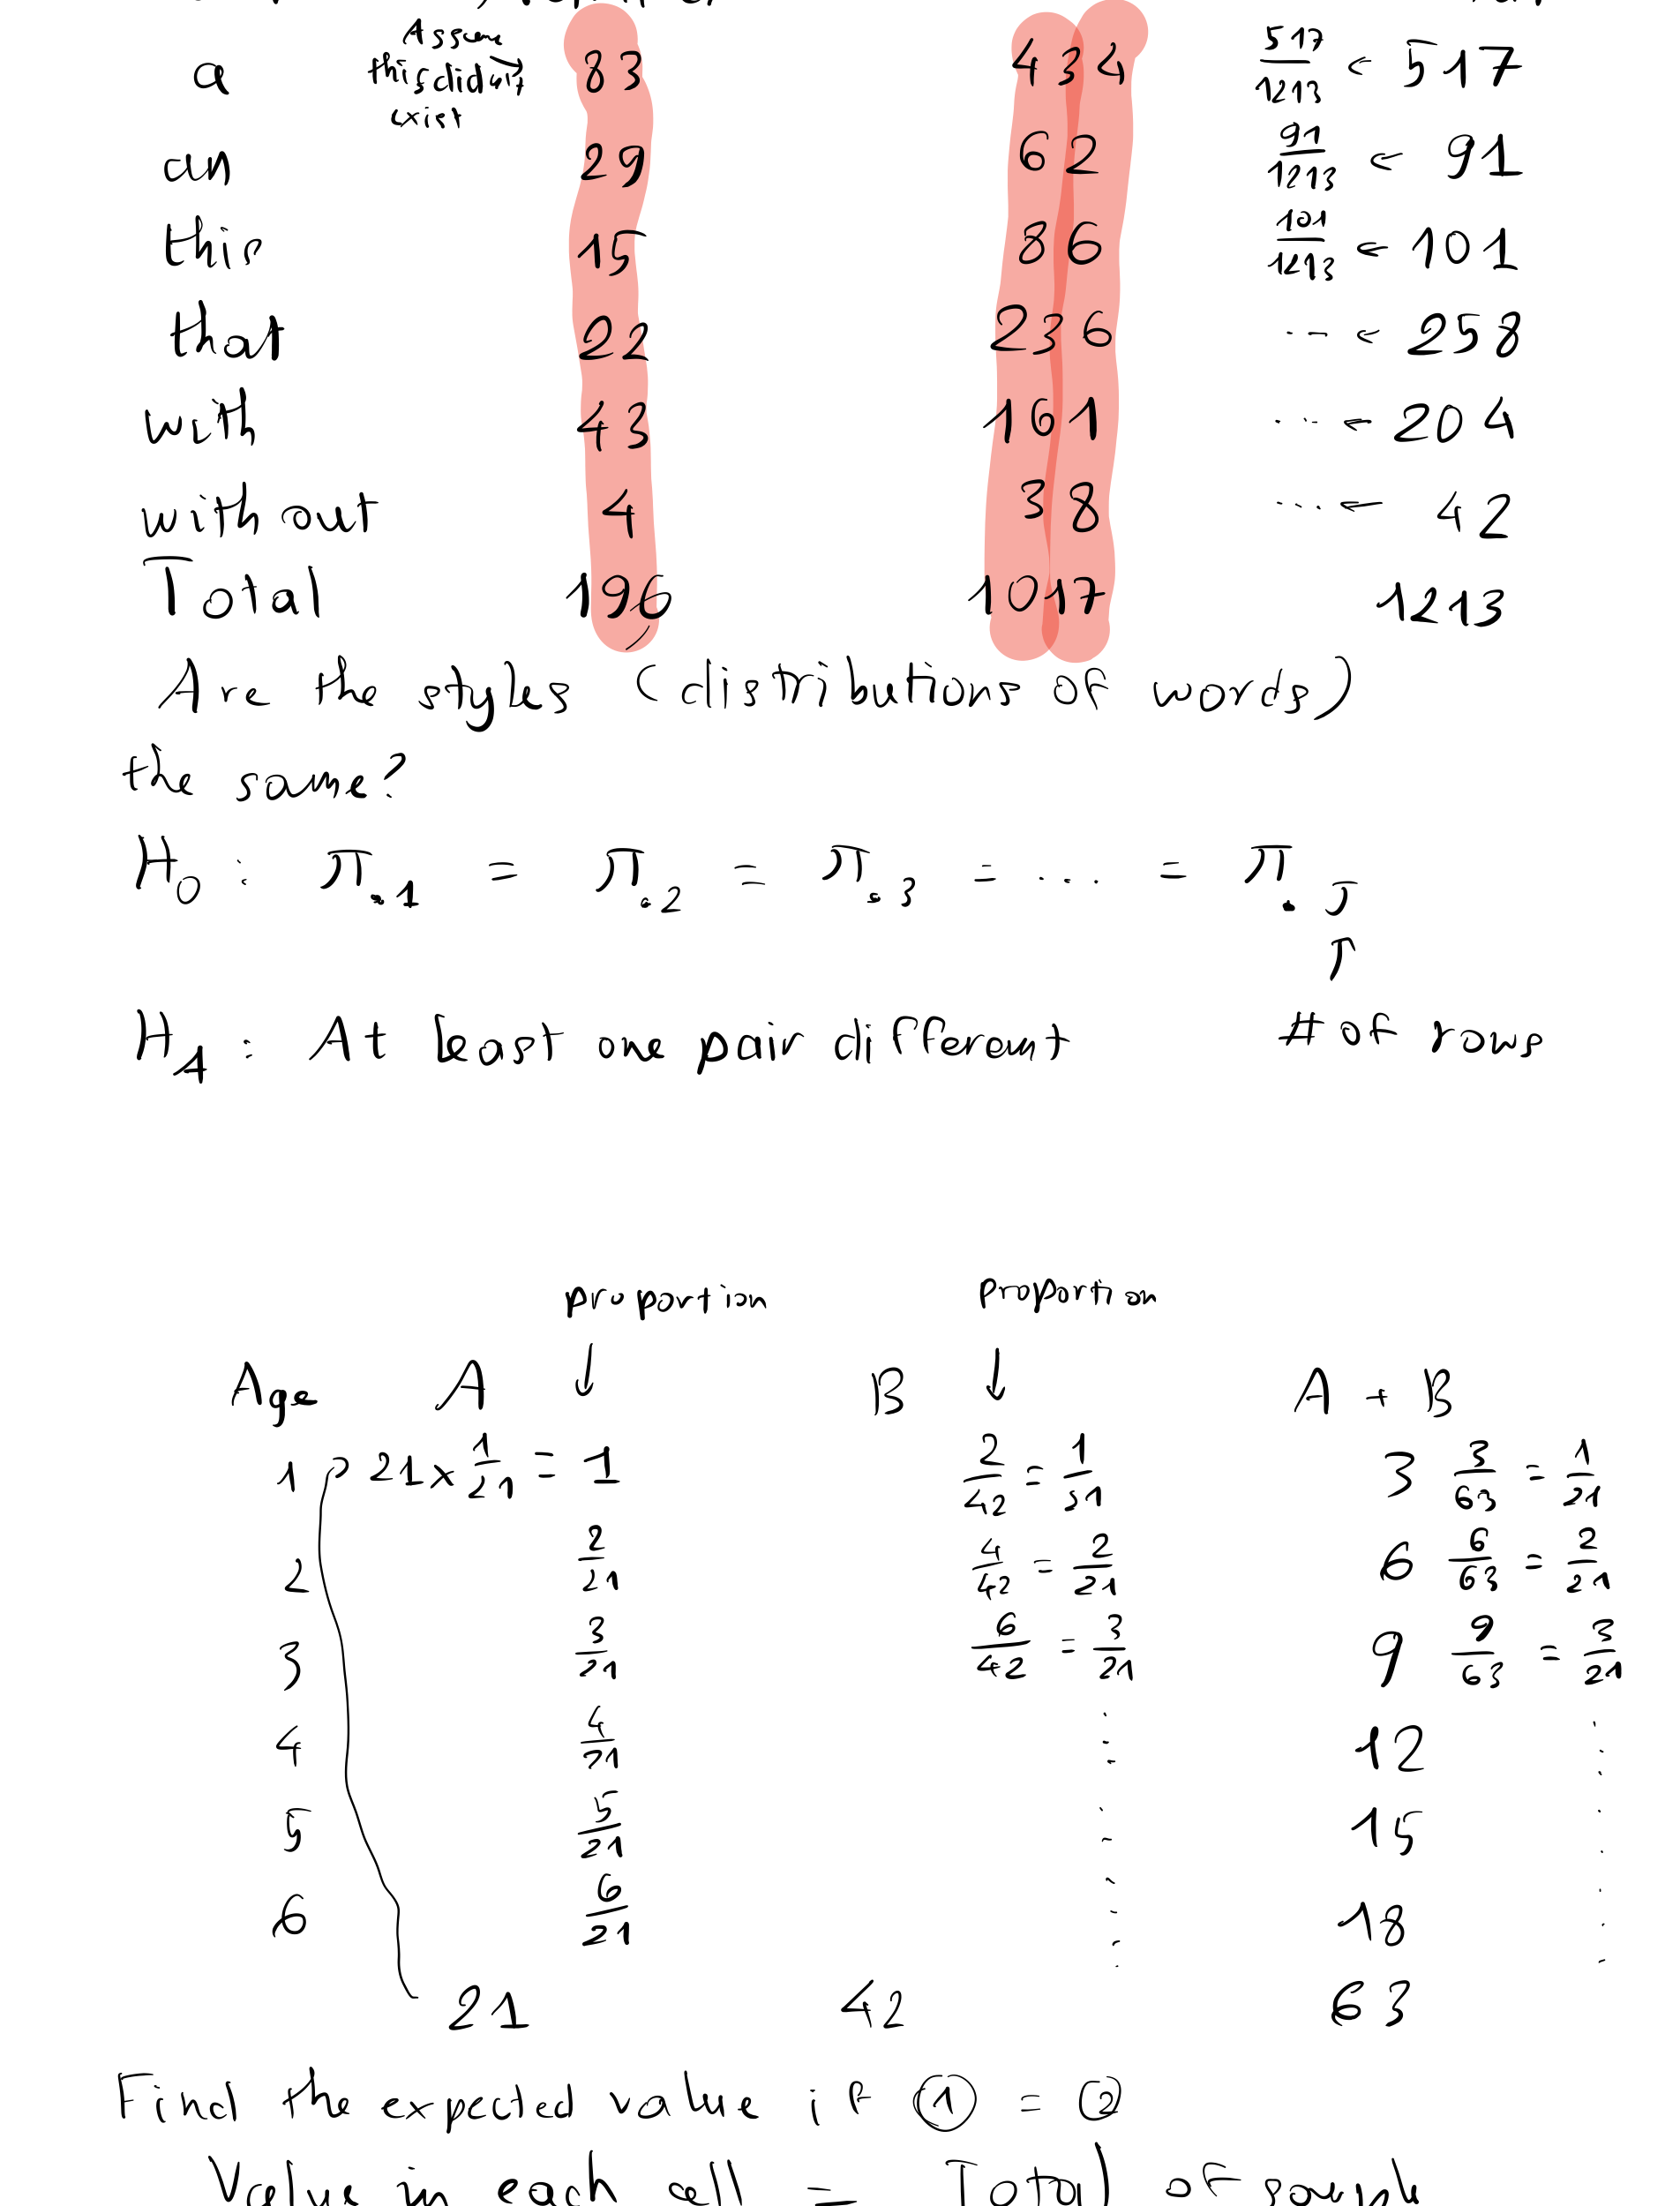 Assume
a this didn't 83 434 517/1213 ← 517
exist
an 29 62 91/1213 ← 91
this 15 86 101/1213 ← 101
that 22 236 ... ← 258
with 43 161 ... ← 204
without 4 38 ... ← 42
Total 196 1017 1213
Are the styles (distributions of words)
the same?
H₀ : π.1 = π.2 = π.3 = ... = π.J
↑
H₁ : At least one pair different # of rows
proportion proportion
Age A ↓ B ↓ A + B
1 21 × 1/21 = 1 2/42 = 1/21 3 3/63 = 1/21
2 2/21 4/42 = 2/21 6 6/63 = 2/21
3 3/21 6/42 = 3/21 9 9/63 = 3/21
4 4/21 12
5 5/21 15
6 6/21 18
21 42 63
Find the expected value if ① = ②
Value in each cell = Total of sample